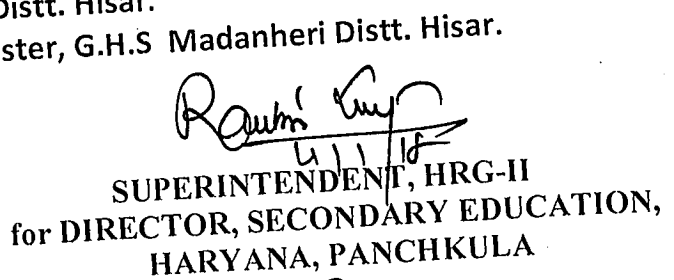 Distt. Hisar.
ster, G.H.S Madanheri Distt. Hisar.
4/1/18
SUPERINTENDENT, HRG-II
for DIRECTOR, SECONDARY EDUCATION,
HARYANA, PANCHKULA